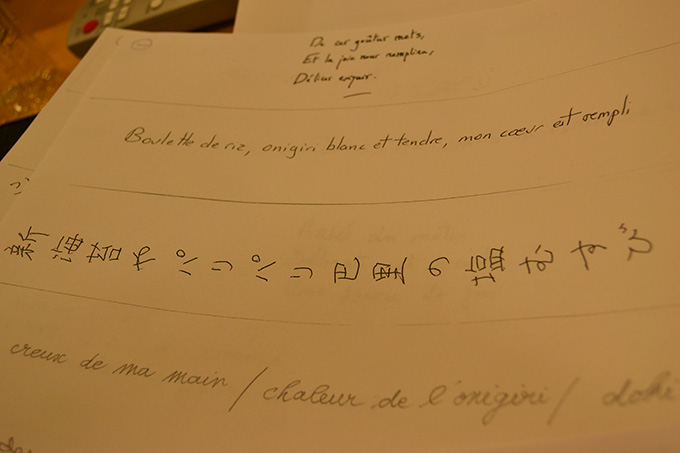 De ces mets,
Et la joie nous
Boulette de riz, onigiri blanc et tendre, mon cœur est rempli
新海苔やパリパリ巴里の塩むすび
creux de ma main / chaleur de l'onigiri /